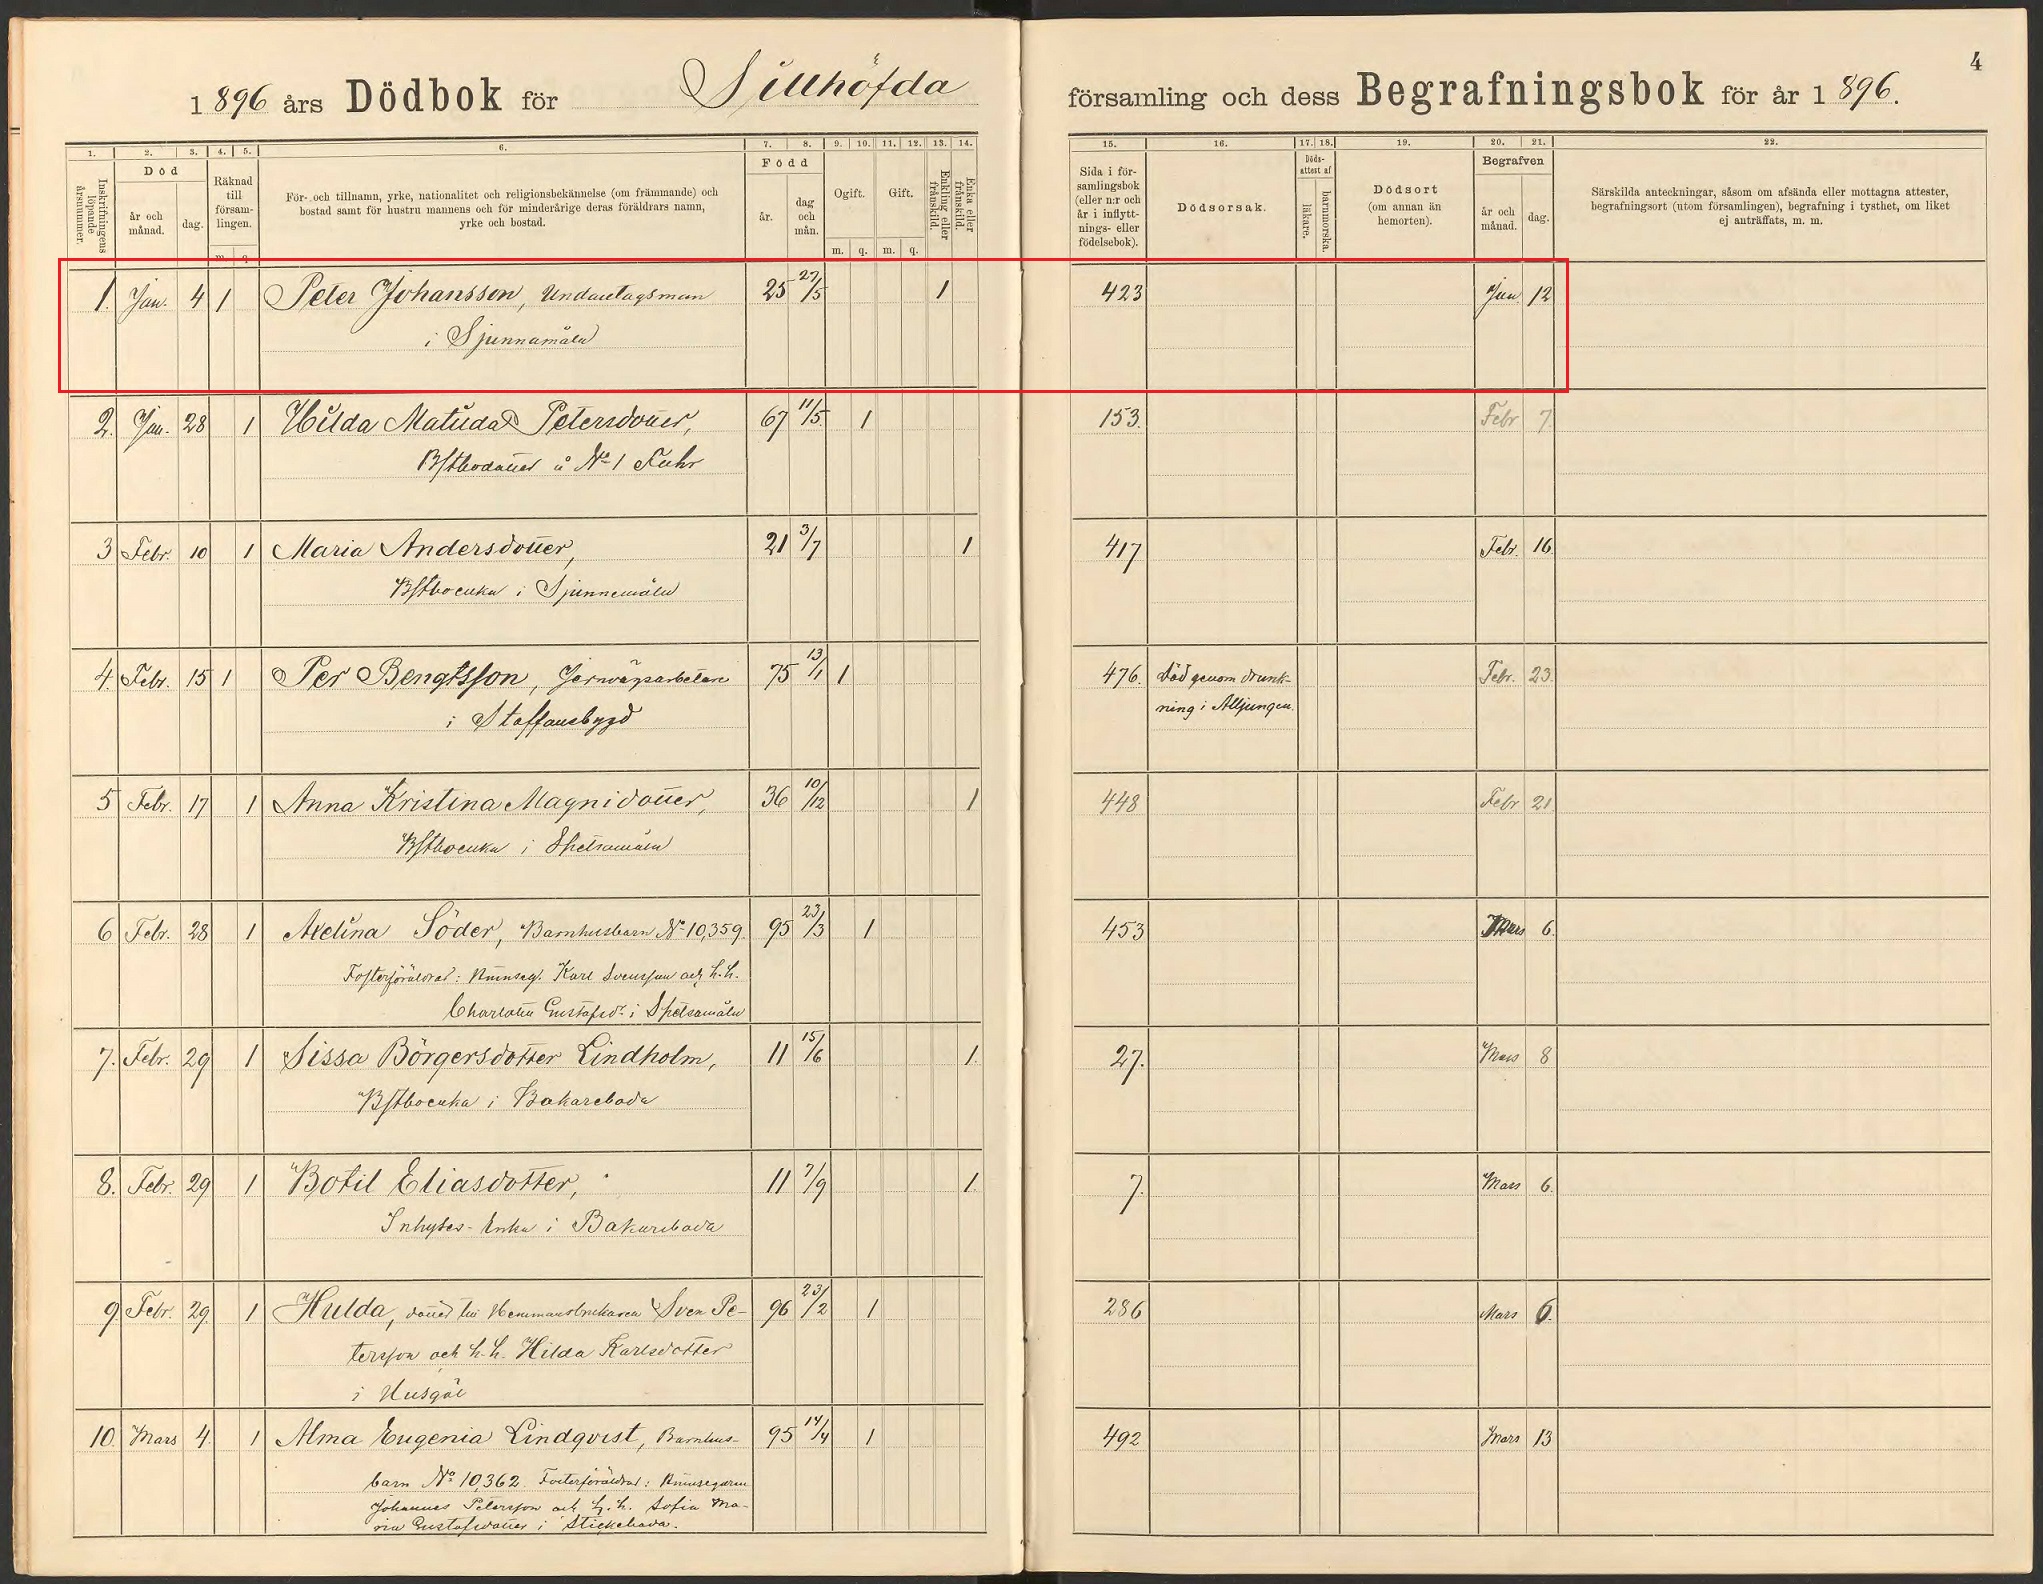 4
1896 års Dödbok för Sillhöfda
församling och dess Begrafningsbok för år 1896.
1. 2. 3. 4. 5. 6. 7. 8. 9. 10. 11. 12. 13. 14.
15. 16. 17. 18. 19. 20. 21. 22.
Inskrifningens löpande årsnummer.
Död
år och månad.
dag.
Räknad till församlingen.
m. q.
För- och tillnamn, yrke, nationalitet och religionsbekännelse (om främmande) och
bostad samt för hustru mannens och för minderårige deras föräldrars namn,
yrke och bostad.
Född
år.
dag och mån.
Ogift.
m. q.
Gift.
m. q.
Enkling eller frånskild.
Enka eller frånskild.
Sida i för-
samlingsbok
(eller n:r och
år i inflytt-
nings- eller
födelsebok).
Dödsorsak.
Döds-
attest af
läkare.
barnmorska.
Dödsort
(om annan än
hemorten).
Begrafven
år och månad.
dag.
Särskilda anteckningar, såsom om afsända eller mottagna attester,
begrafningsort (utom församlingen), begrafning i tysthet, om liket
ej anträffats, m. m.
1. Jan. 4 1 Peter Johansson, Undantagsman 25 27/5 1 423 Jan. 12
i Sjunnamåla
2. Jan. 28 1 Hilda Matilda Petersdotter, 67 11/5 1 153. Febr 7.
å No 1 Fuhr
3 Febr. 10 1 Maria Andersdotter, 21 3/7 1 417 Febr. 16
i Sjunnemåla
4. Febr. 15 1 Per Bengtsson, Jernvägsarbetare 75 13/1 1 476. Död genom drunk- Febr. 23.
i Staffansbygd ning i Alljungen.
5 Febr. 17 1 Anna Kristina Magnidotter, 36 10/12 1 448 Febr 21.
i Spetsamåla
6 Febr. 28 1 Axelina Söder, Barnhusbarn No 10,359. 95 23/3 1 453 Mars 6.
Fosterföräldrar: Karl Svensson och h. h.
Charlotta Gustafsdr i Spetsamåla
7. Febr. 29 1 Sissa Börgersdotter Lindholm, 11 15/6 1. 27. Mars 8
i Bakareboda
8. Febr. 29 1 Botil Eliasdotter, 11 7/9 1. 7. Mars 6.
Inhyses-Enka i Bakareboda
9. Febr. 29. 1 Hulda, dotter till Hemmansbrukaren Sven Pe- 96 23/2 1 286 Mars 6.
tersson och h. h. Hilda Karlsdotter
i Husgöl
10. Mars 4. 1 Alma Eugenia Lindqvist, Barnhus- 95 14/4 1 492 Mars 13
barn No 10,362. Fosterföräldrar:
Johannes Petersson och h. h. Sofia Ma-
ria Gustafsdotter i Stickeboda.